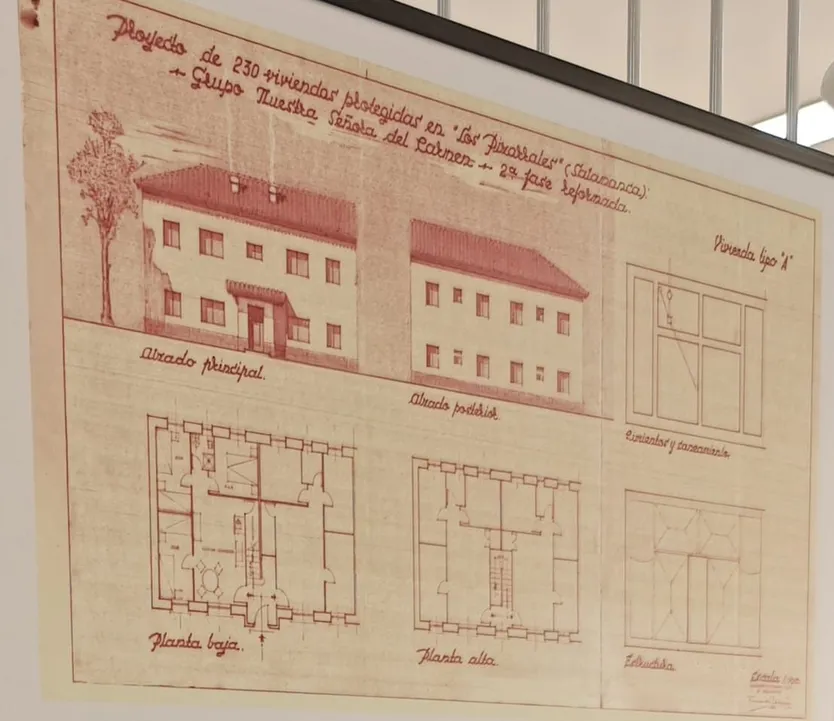 Proyecto de 230 viviendas protegidas en "Los Pizarrales" (Salamanca).
Grupo Nuestra Señora del Carmen 2ª fase reformada.
Vivienda tipo "A"
Alzado principal.
Alzado posterior.
Cimientos y saneamiento.
Planta baja.
Planta alta.
Estructura
Escala